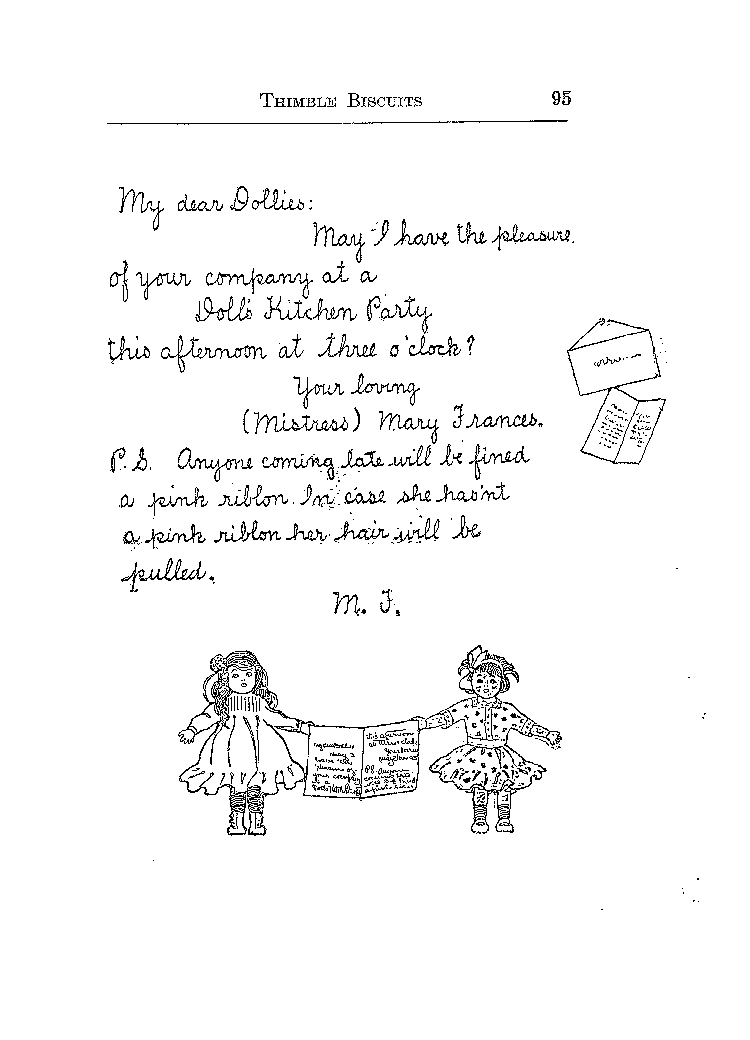 THIMBLE BISCUITS 95
My dear Dollies:
May I have the pleasure
of your company at a
Doll's Kitchen Party
this afternoon at three o'clock?
Your loving
(Mistress) Mary Frances.
P.S. Anyone coming late will be fined
a pink ribbon. In case she hasn't
a pink ribbon her hair will be
pulled.
M. F.